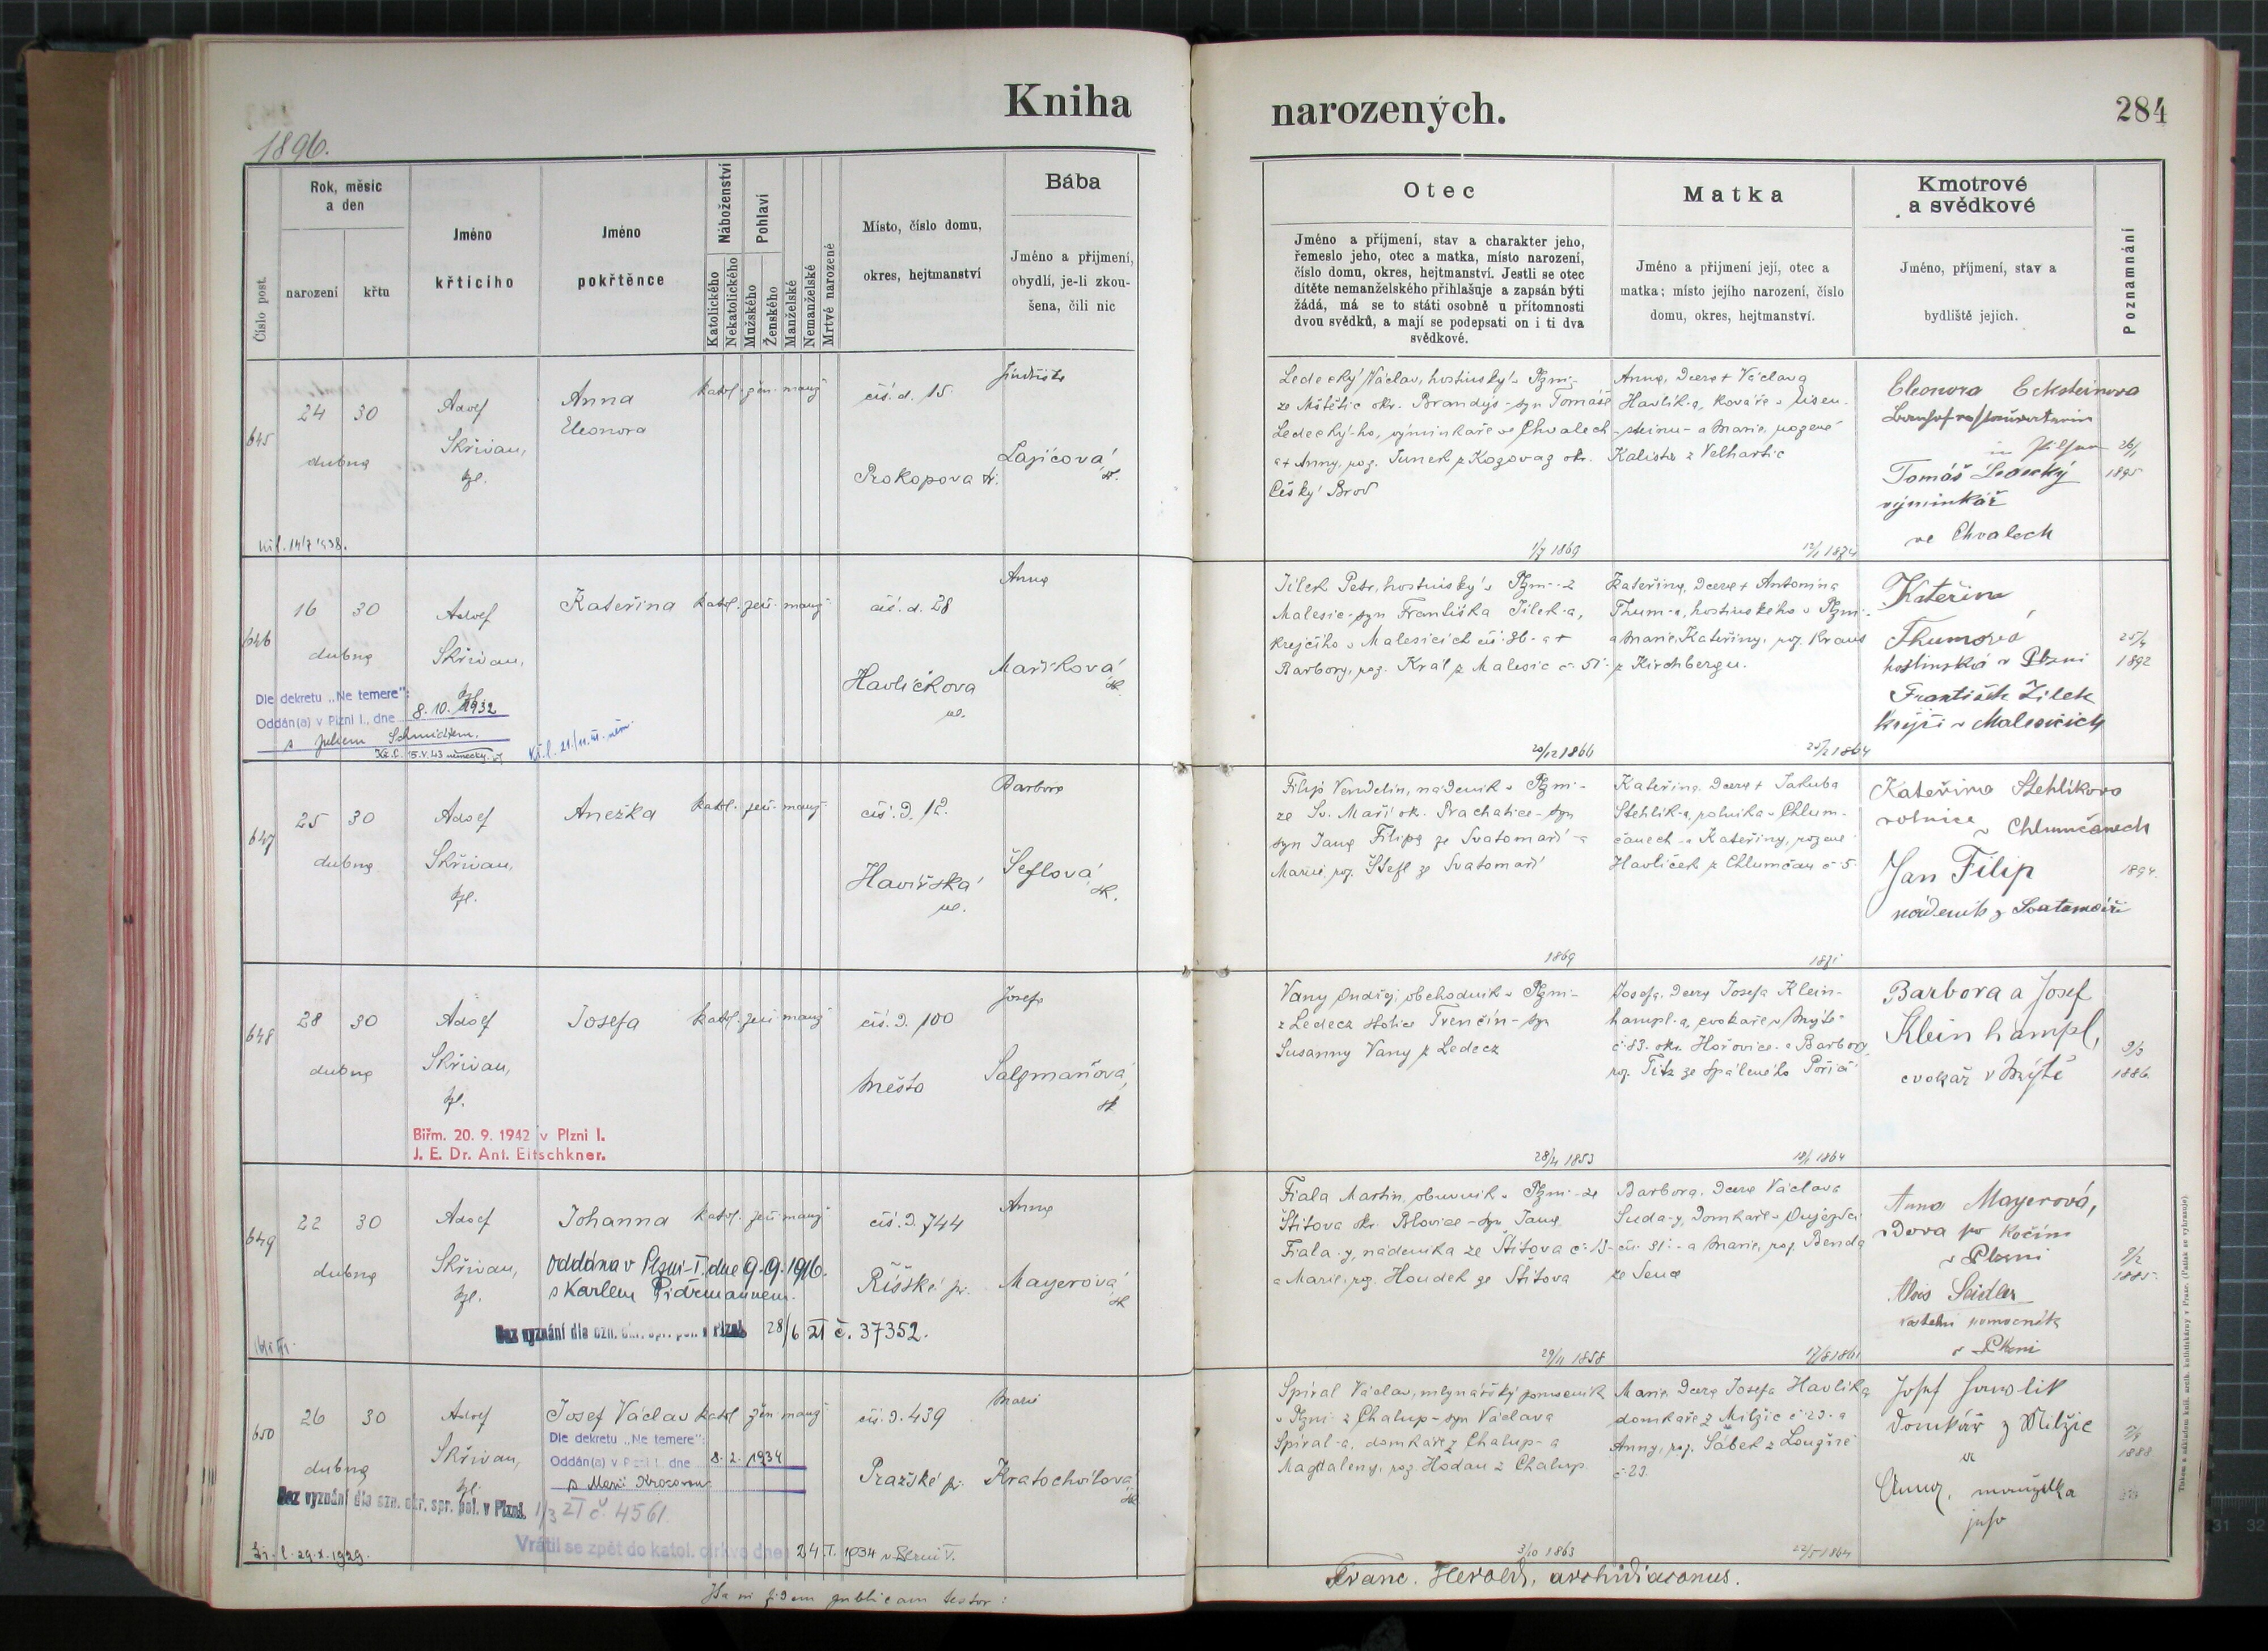 Kniha
narozených.
284
1896.
Číslo post.
Rok, měsíc
a den
narození
křtu
Jméno
křtícího
Jméno
pokřtěnce
Náboženství
Katolického
Nekatolického
Pohlaví
Mužského
Ženského
Manželské
Nemanželské
Mrtvě narozené
Místo, číslo domu,
okres, hejtmanství
Bába
Jméno a příjmení,
obydlí, je-li zkou-
šena, čili nic
Otec
Jméno a příjmení, stav a charakter jeho,
řemeslo jeho, otec a matka, místo narození,
číslo domu, okres, hejtmanství. Jestli se otec
dítěte nemanželského přihlašuje a zapsán býti
žádá, má se to státi osobně u přítomnosti
dvou svědků, a mají se podepsati on i ti dva
svědkové.
Matka
Jméno a příjmení její, otec a
matka; místo jejího narození, číslo
domu, okres, hejtmanství.
Kmotrové
a svědkové
Jméno, příjmení, stav a
bydliště jejich.
Poznamnání
645
24 30
dubna
Adolf
Skřivan,
kpl.
Anna
Eleonora
katol. žen. manž
čís. d. 15.
Prokopova tř.
Jindřiška
Lajicová
Ledecký Václav, hostinský v Plzni-
ze Mštětic okr. Brandýs - syn Tomáše
Ledecký-ho, výminkáře ve Chvalech
a + Anny, roz. Tunek z Kozovaz okr.
Český Brod
1/7 1869
Anna, dcera + Václava
Havlík-a, kováře v Eisen-
-steinu - a Marie, rozené
Kalista z Velhartic
12/1 1874
Eleonora Ecksteinova
in Pilsen
Tomáš Ledecký
výminkář
ve Chvalech
26/1
1895
646
16 30
dubna
Adolf
Skřivan,
kpl.
Kateřina
katol. žen. manž
čís. d. 28
Havlíčkova
ul.
Anna
Maříková
Jílek Petr, hostinský v Plzni - z
Malesic - syn Františka Jílek-a,
krejčího v Malesicích čís. 86 - a +
Barbory, roz. Král z Malesic č. 51
20/12 1866
Kateřina, dcera + Antonína
Thum-a, hostinského v Plzni-
a Marie Kateřiny, roz. Kraus
z Kirchbergu.
25/2 1864
Kateřina
Thumová
hostinská v Plzni
František Žilek
krejčí v Malesicích
25/4
1892
Dle dekretu „Ne temere":
Oddán(a) v Plzni I., dne 8. 10. 1932
s Schmidtem.
Kř. l. 15.V.43 německy.
647
25 30
dubna
Adolf
Skřivan,
kpl.
Anežka
katol. žen. manž
čís. d. 12.
Havířská
ul.
Barbora
Šeflová
Filip Vendelín, nádeník v Plzni -
ze Sv. Maří ok. Prachatice - syn
syn Jana Filipa ze Svatomaří - a
Marie, roz. Štefl ze Svatomaří
1869
Kateřina, dcera + Jakuba
Stehlík-a, rolníka v Chlum-
čanech - a Kateřiny, rozené
Havlíček z Chlumčan č. 5
1871
Kateřina Stehlíkova
rolnice v Chlumčanech
Jan Filip
nádeník z Svatomáří
1894.
648
28 30
dubna
Adolf
Skřivan,
kpl.
Josefa
katol. žen. manž
čís. d. 100
Město
Josefa
Salzmaňová
Vany Ondřej, obchodník v Plzni -
z Ledecz stolice Trenčín - syn
Susanny Vany z Ledecz
28/11 1853
Josefa, dcera Josefa Klein-
hampl-a, cvokaře v Mýtě
č. 83. okr. Hořovice - a Barbory
roz. Titz ze Spáleného Poříčí
Barbora a Josef
Klein hampl,
cvokař v Mýtě
9/5
1886.
Biřm. 20. 9. 1942 v Plzni I.
J. E. Dr. Ant. Eltschkner.
649
22 30
dubna
Adolf
Skřivan,
kpl.
Johanna
oddána v Plzni-I. dne 9. 9. 1916.
s Karlem Pidrmannem.
katol. žen. manž
čís. d. 744
Říšské př.
Anna
Mayerová
Fiala Martin, obuvník v Plzni - ze
Štítova okr. Blovice - syn Jana
Fiala-y, nádeníka ze Štítova č. 13 -
a Marie, roz. Houdek ze Štítova
29/11 1858
Barbora, dcera Václava
Suda-y, domkaře v Oujezdci
čís. 31 - a Marie, roz. Benda
ze Sena
17/8 1861
Anna Mayerová,
vdova po kočím
v Plzni
Alois Seidler
pomocník
v Plzni
9/2
1885.
Bez vyznání dle ozn. okr. spr. pol. v Plzni 28/6 21 č. 37352.
650
26 30
dubna
Adolf
Skřivan,
kpl.
Josef Václav
katol žen manž
čís. d. 439
Pražské př.
Marie
Kratochvílová
Spiral Václav, mlynářský pomocník
v Plzni z Chalup - syn Václava
Spiral-a, domkaře z Chalup - a
Magdaleny, roz. Hodan z Chalup
3/10 1863
Marie, dcera Josefa Havlíka
domkaře z Milžic č. 23 - a
Anny, roz. Sábek z Loužné
č. 23.
22/5 1864
Josef Havolik
domkář z Milžic
a
Anna, manželka
jeho
1888
Dle dekretu „Ne temere":
Oddán(a) v Plzni I., dne 8. 2. 1934
s Marií
Bez vyznání dle ozn. okr. spr. pol. v Plzni. 1/3 21 č. 4561.
Vrátil se zpět do katol. církve dne 24. I. 1934 v Plzni V.
29.X.1929.
Ita in fidem publicam testor:
Franc. Herold, archidiaconus.